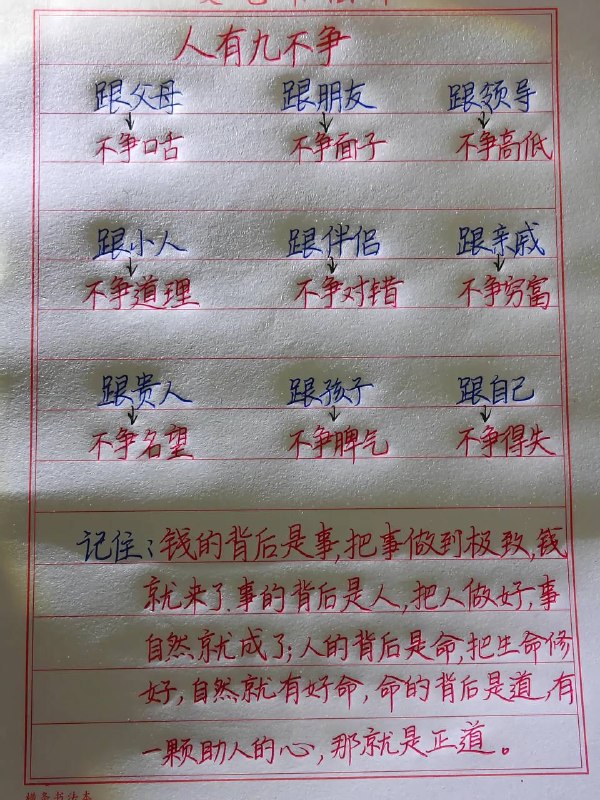 人有九不争
跟父母 跟朋友 跟领导
不争口舌 不争面子 不争高低
跟小人 跟伴侣 跟亲戚
不争道理 不争对错 不争穷富
跟贵人 跟孩子 跟自己
不争名望 不争脾气 不争得失
记住：钱的背后是事，把事做到极致，钱
就来了.事的背后是人，把人做好，事
自然就成了；人的背后是命，把生命修
好，自然就有好命，命的背后是道，有
一颗助人的心，那就是正道。